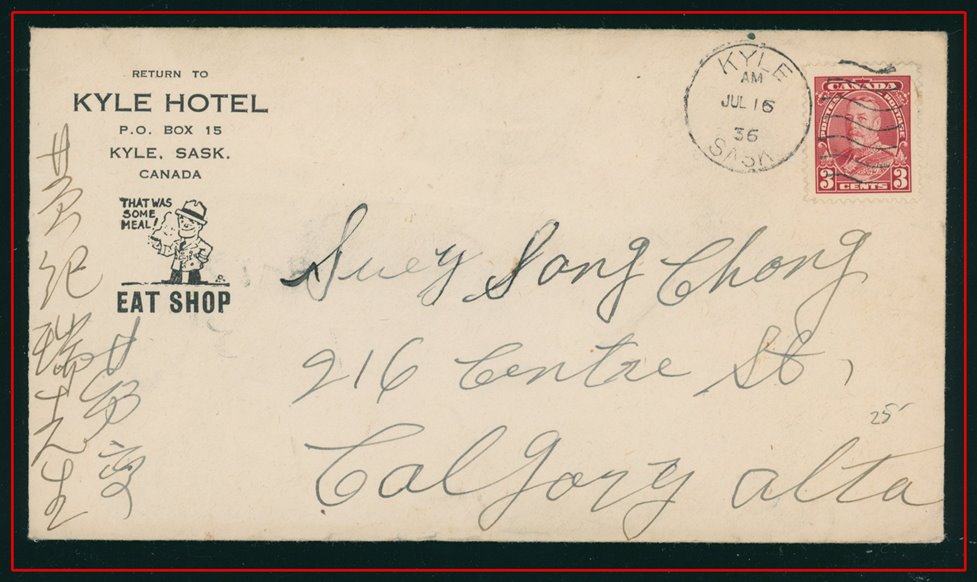 RETURN TO
KYLE HOTEL
P.O. BOX 15
KYLE, SASK.
CANADA
THAT WAS
SOME
MEAL!
EAT SHOP
KYLE
AM
JUL 16
36
SASK
CANADA
POSTES POSTAGE
3 CENTS 3
Suey Song Chong
216 Centre St,
Calgory alta
25